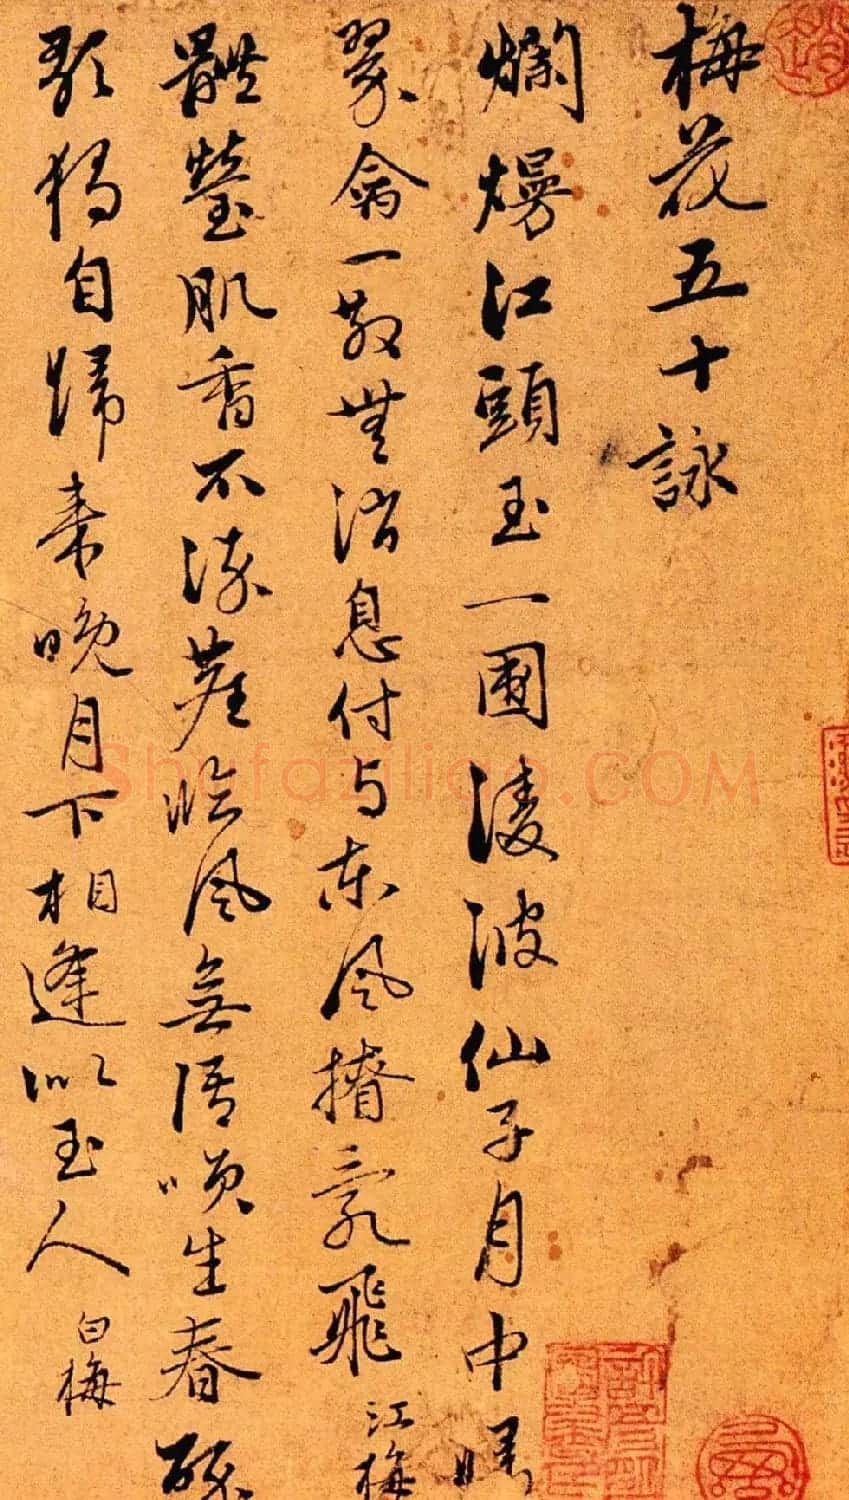 梅花五十詠
爛熳江頭玉一圍凌波仙子月中歸
翠禽一散無消息付与東風亂飛 江梅
體瑩肌香不塵臨風無語咲生春醉
歌獨自歸来晚月下相逢似玉人 白梅
Shufaziliao.COM